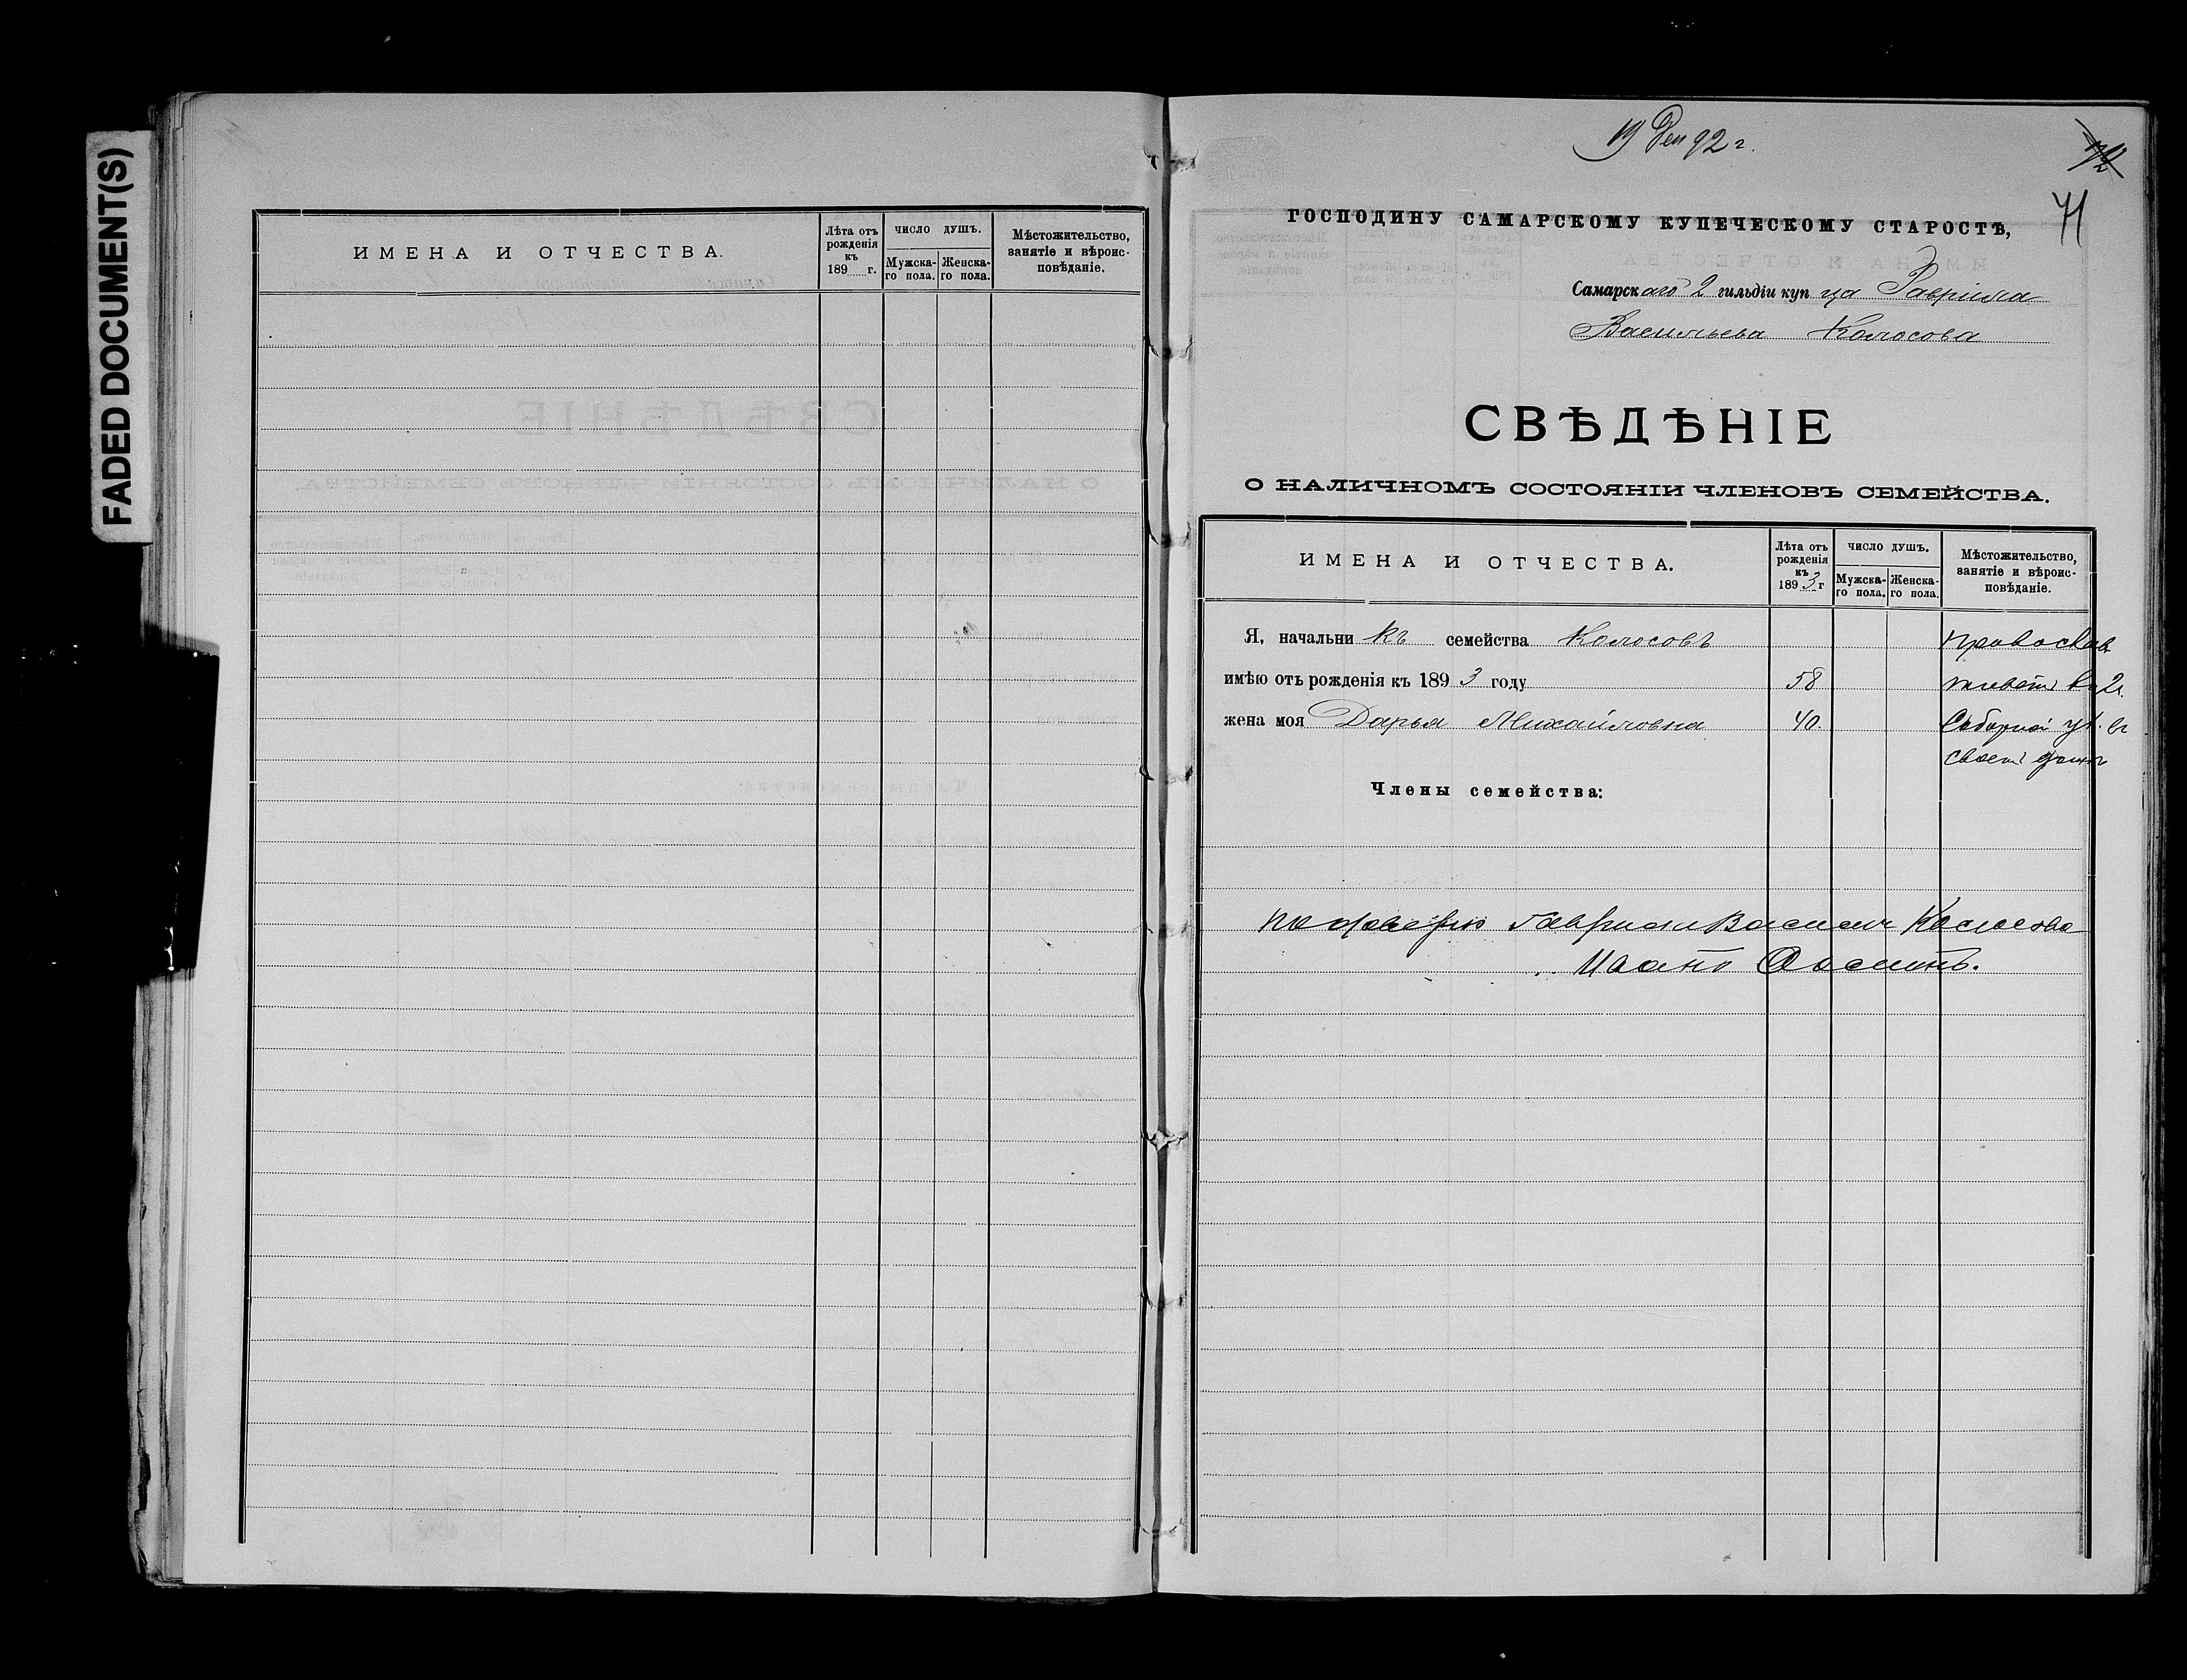 FADED DOCUMENT(S)
ИМЕНА И ОТЧЕСТВА.
Лѣта отъ рожденія къ 189 г.
ЧИСЛО ДУШЪ.
Мужска-го пола.
Женска-го пола.
Мѣстожительство, занятіе и вѣроис-повѣданіе.
19 Дек 92 г.
72
71
ГОСПОДИНУ САМАРСКОМУ КУПЕЧЕСКОМУ СТАРОСТѢ,
Самарскаго 2 гильдіи купца Гавріила
Васильева Колосова
СВѢДѢНІЕ
О НАЛИЧНОМЪ СОСТОЯНІИ ЧЛЕНОВЪ СЕМЕЙСТВА.
ИМЕНА И ОТЧЕСТВА.
Лѣта отъ рожденія къ 1893 г
ЧИСЛО ДУШЪ.
Мужска-го пола.
Женска-го пола.
Мѣстожительство, занятіе и вѣроис-повѣданіе.
Я, начальникъ семейства Колосовъ православ
имѣю отъ рожденія къ 1893 году 58 живетъ во 2 ч.
жена моя Дарья Михайловна 40 Соборной ул. въ
своемъ домѣ
Члены семейства:
по доверию Гаврила Василич Колосова
Иванъ